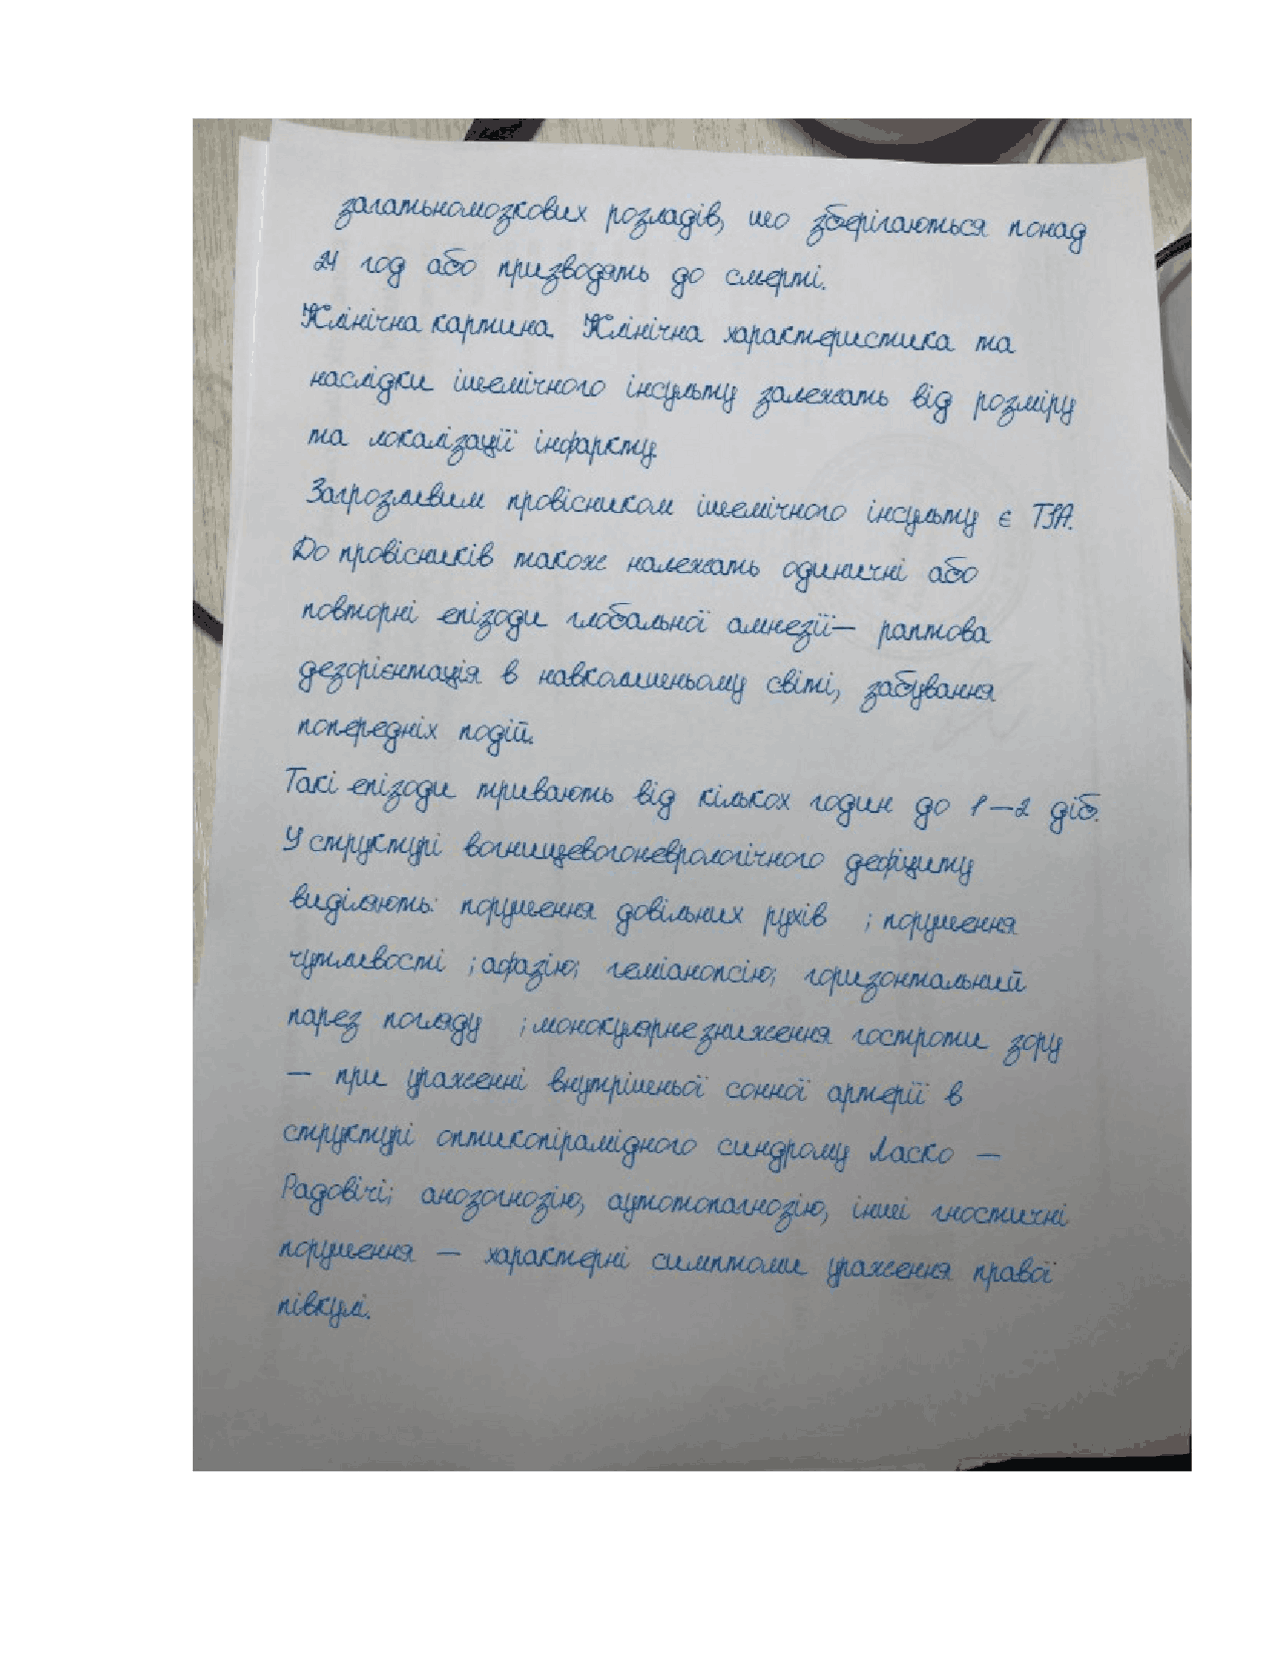 загальномозкових розладів, що зберігаються понад
24 год або призводять до смерті.
Клінічна картина Клінічна характеристика та
наслідки ішемічного інсульту залежать від розміру
та локалізації інфаркту
Загрозливим провісником ішемічного інсульту є ТІА.
До провісників також належать одиничні або
повторні епізоди глобальної амнезії — раптова
дезорієнтація в навколишньому світі, забування
попередніх подій.
Такі епізоди тривають від кількох годин до 1—2 діб.
У структурі вогнищевогоневрологічного дефіциту
виділяють: порушення довільних рухів ; порушення
чутливості ; афазію; геміанопсію; горизонтальний
парез погляду ; монокулярне зниження гостроти зору
— при ураженні внутрішньої сонної артерії в
структурі оптикопірамідного синдрому Ласко —
Радовічі; анозогнозію, аутотопагнозію, інші гностичні
порушення — характерні симптоми ураження правої
півкулі.